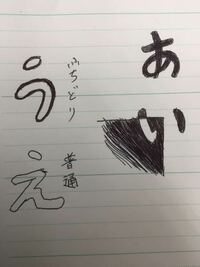 あい
ふちどり
普通
うえ